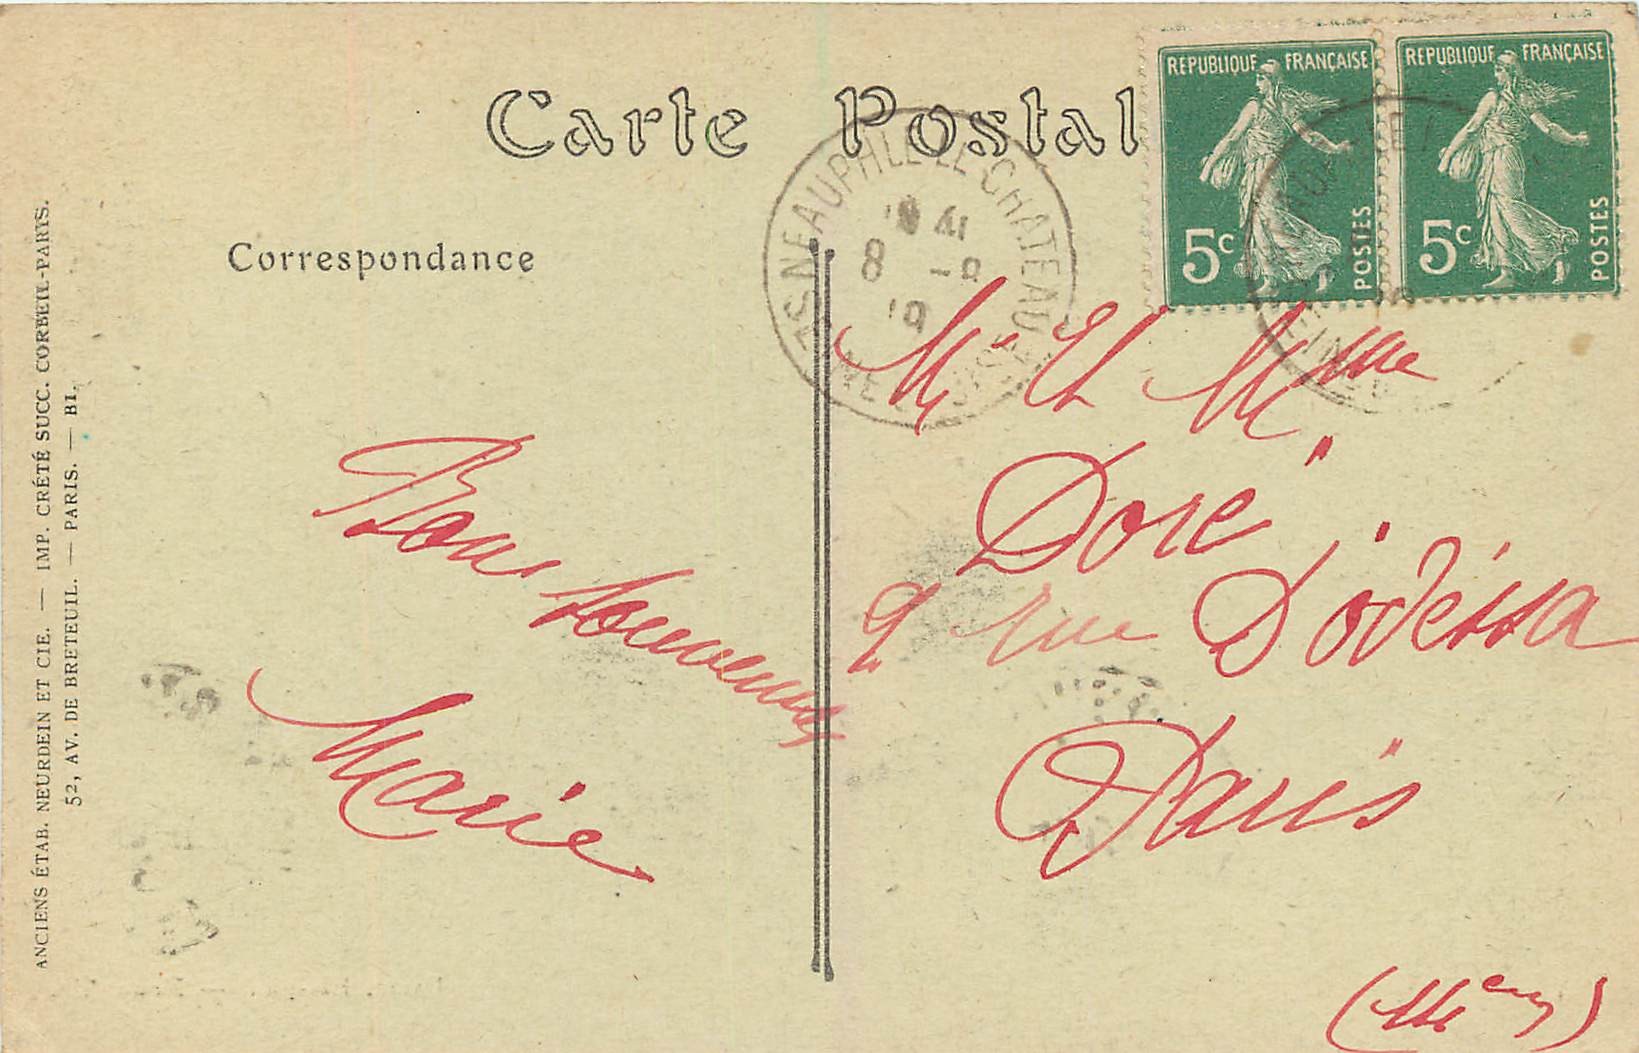 Carte Postale
REPUBLIQUE FRANÇAISE
5c
POSTES
REPUBLIQUE FRANÇAISE
5c
POSTES
NEAUPHLE-LE-CHATEAU
8 -8
19
Correspondance
Bons souvenirs
Marie
Mr Et Mme
Doré
9 rue D'odéssa
Paris
ANCIENS ÉTAB. NEURDEIN ET CIE. — IMP. CRÉTÉ SUCC. CORBEIL-PARIS.
52, AV. DE BRETEUIL. — PARIS. — BI.